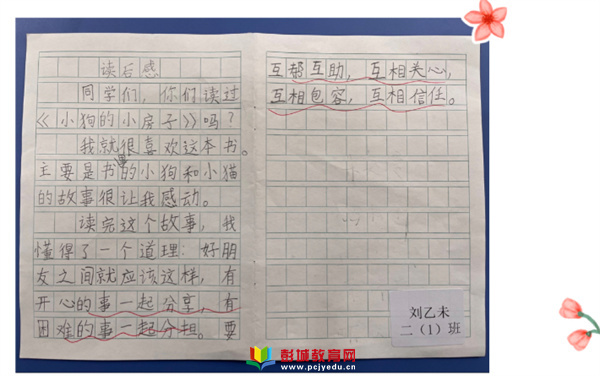 读后感
同学们，你们读过
《小狗的小房子》吗？
我就很喜欢这本书。
主要是书里的小狗和小猫
的故事很让我感动。
读完这个故事，我
懂得了一个道理：好朋
友之间就应该这样，有
开心的事一起分享，有
困难的事一起分担。要
互帮互助，互相关心，
互相包容，互相信任。
刘乙未
二（1）班
彭城教育网
www.pcjyedu.cn